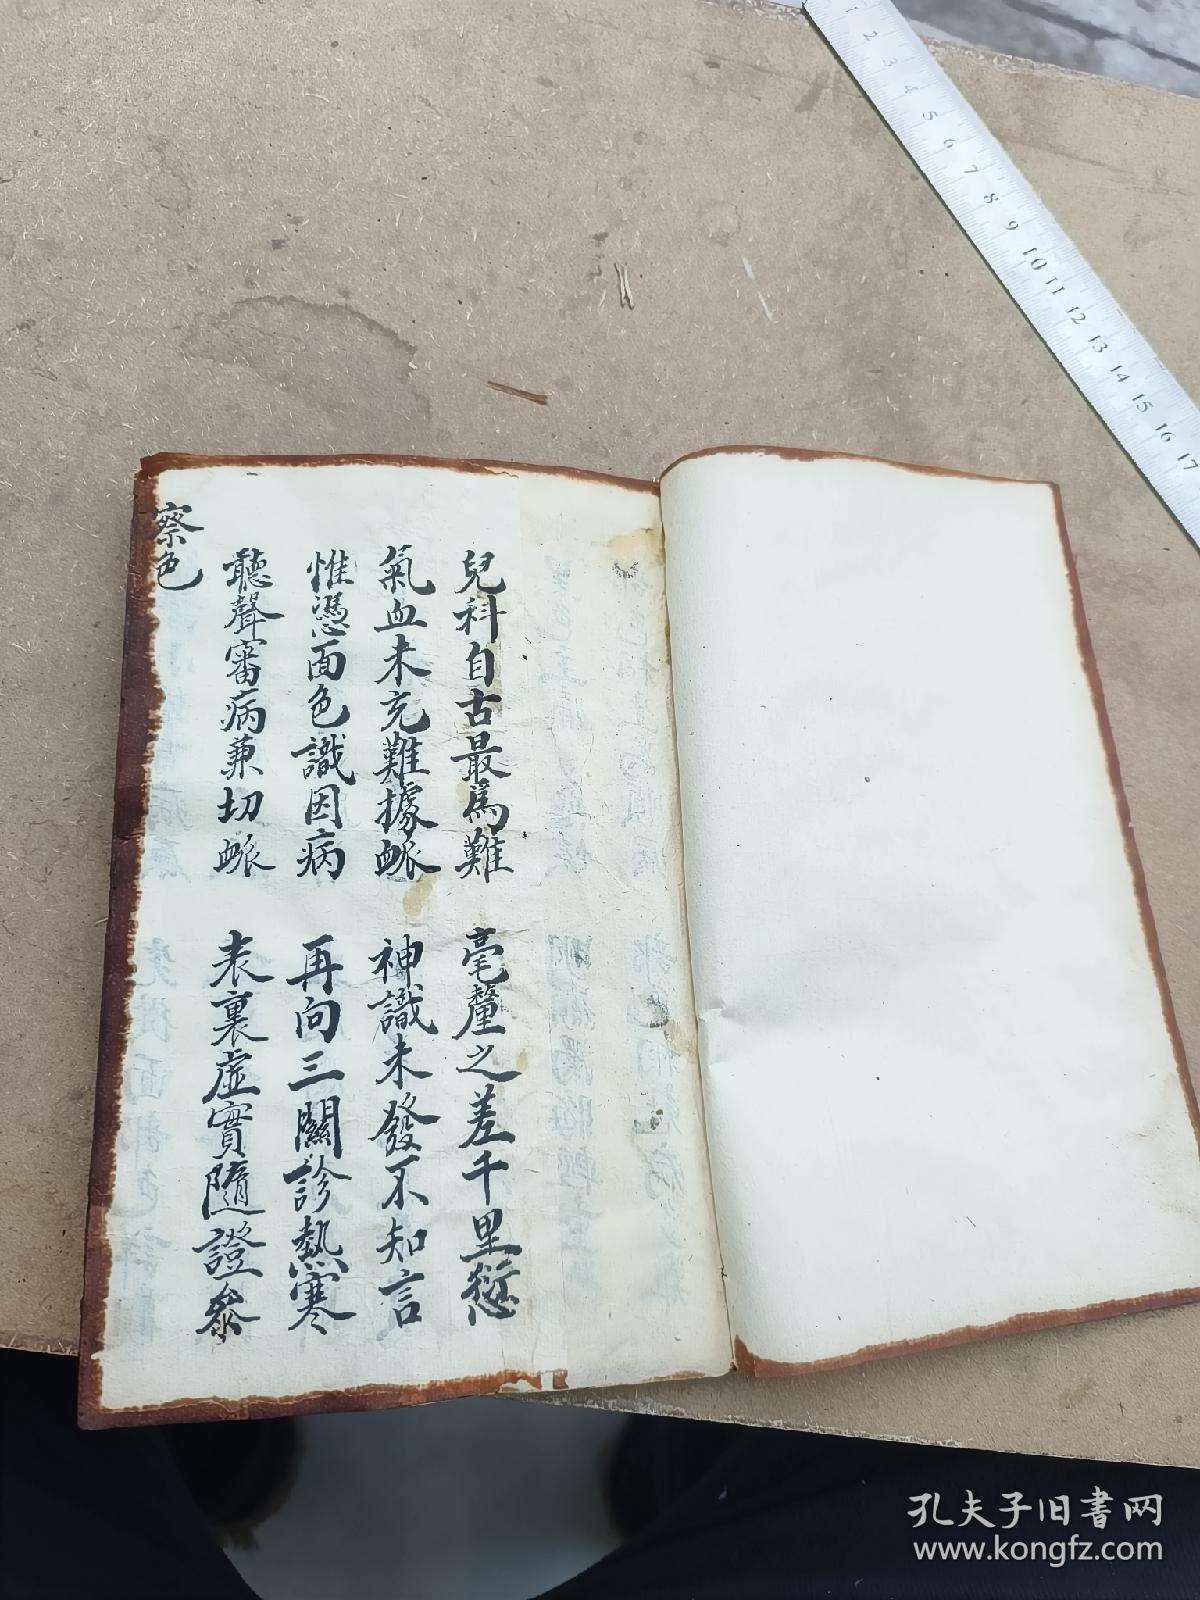 兒科自古最爲難　毫釐之差千里愆
氣血未充難據脈　神識未發不知言
惟憑面色識因病　再向三關診熱寒
聽聲審病兼切脈　表裏虛實隨證參
察色
1 2 3 4 5 6 7 8 9 10 11 12 13 14 15 16 17
孔夫子旧书网
www.kongfz.com